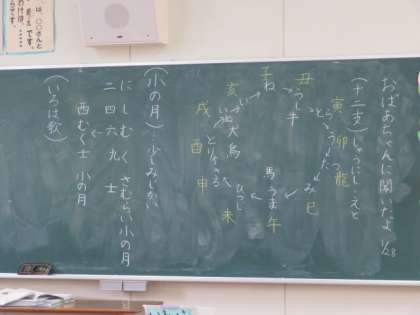 おばあちゃんに聞いたよ 1/28
(十二支)じゅうにし・えと
子 丑 寅 卯 龍
ね うし とら うさぎ たつ
牛
み 巳
馬 うま 午
ひつじ 未
とり さる 申
酉
犬 鳥
戌
いぬ い
亥
(小の月) 少しみじかい
にしむくさむらい小の月
二四六九士
酉むく士 小の月
(いろは歌)